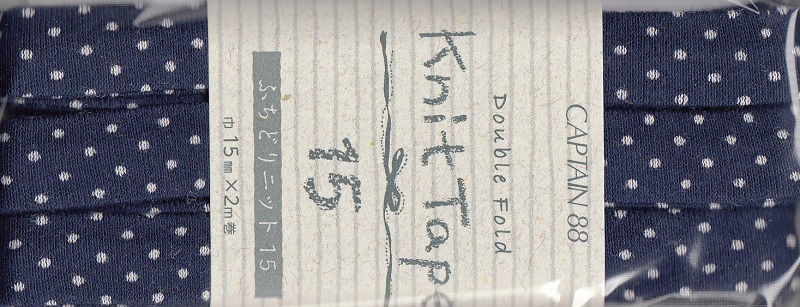 CAPTAIN 88
Double Fold
Knit Tape
15
ふちどりニット15
巾15㎜×2m巻